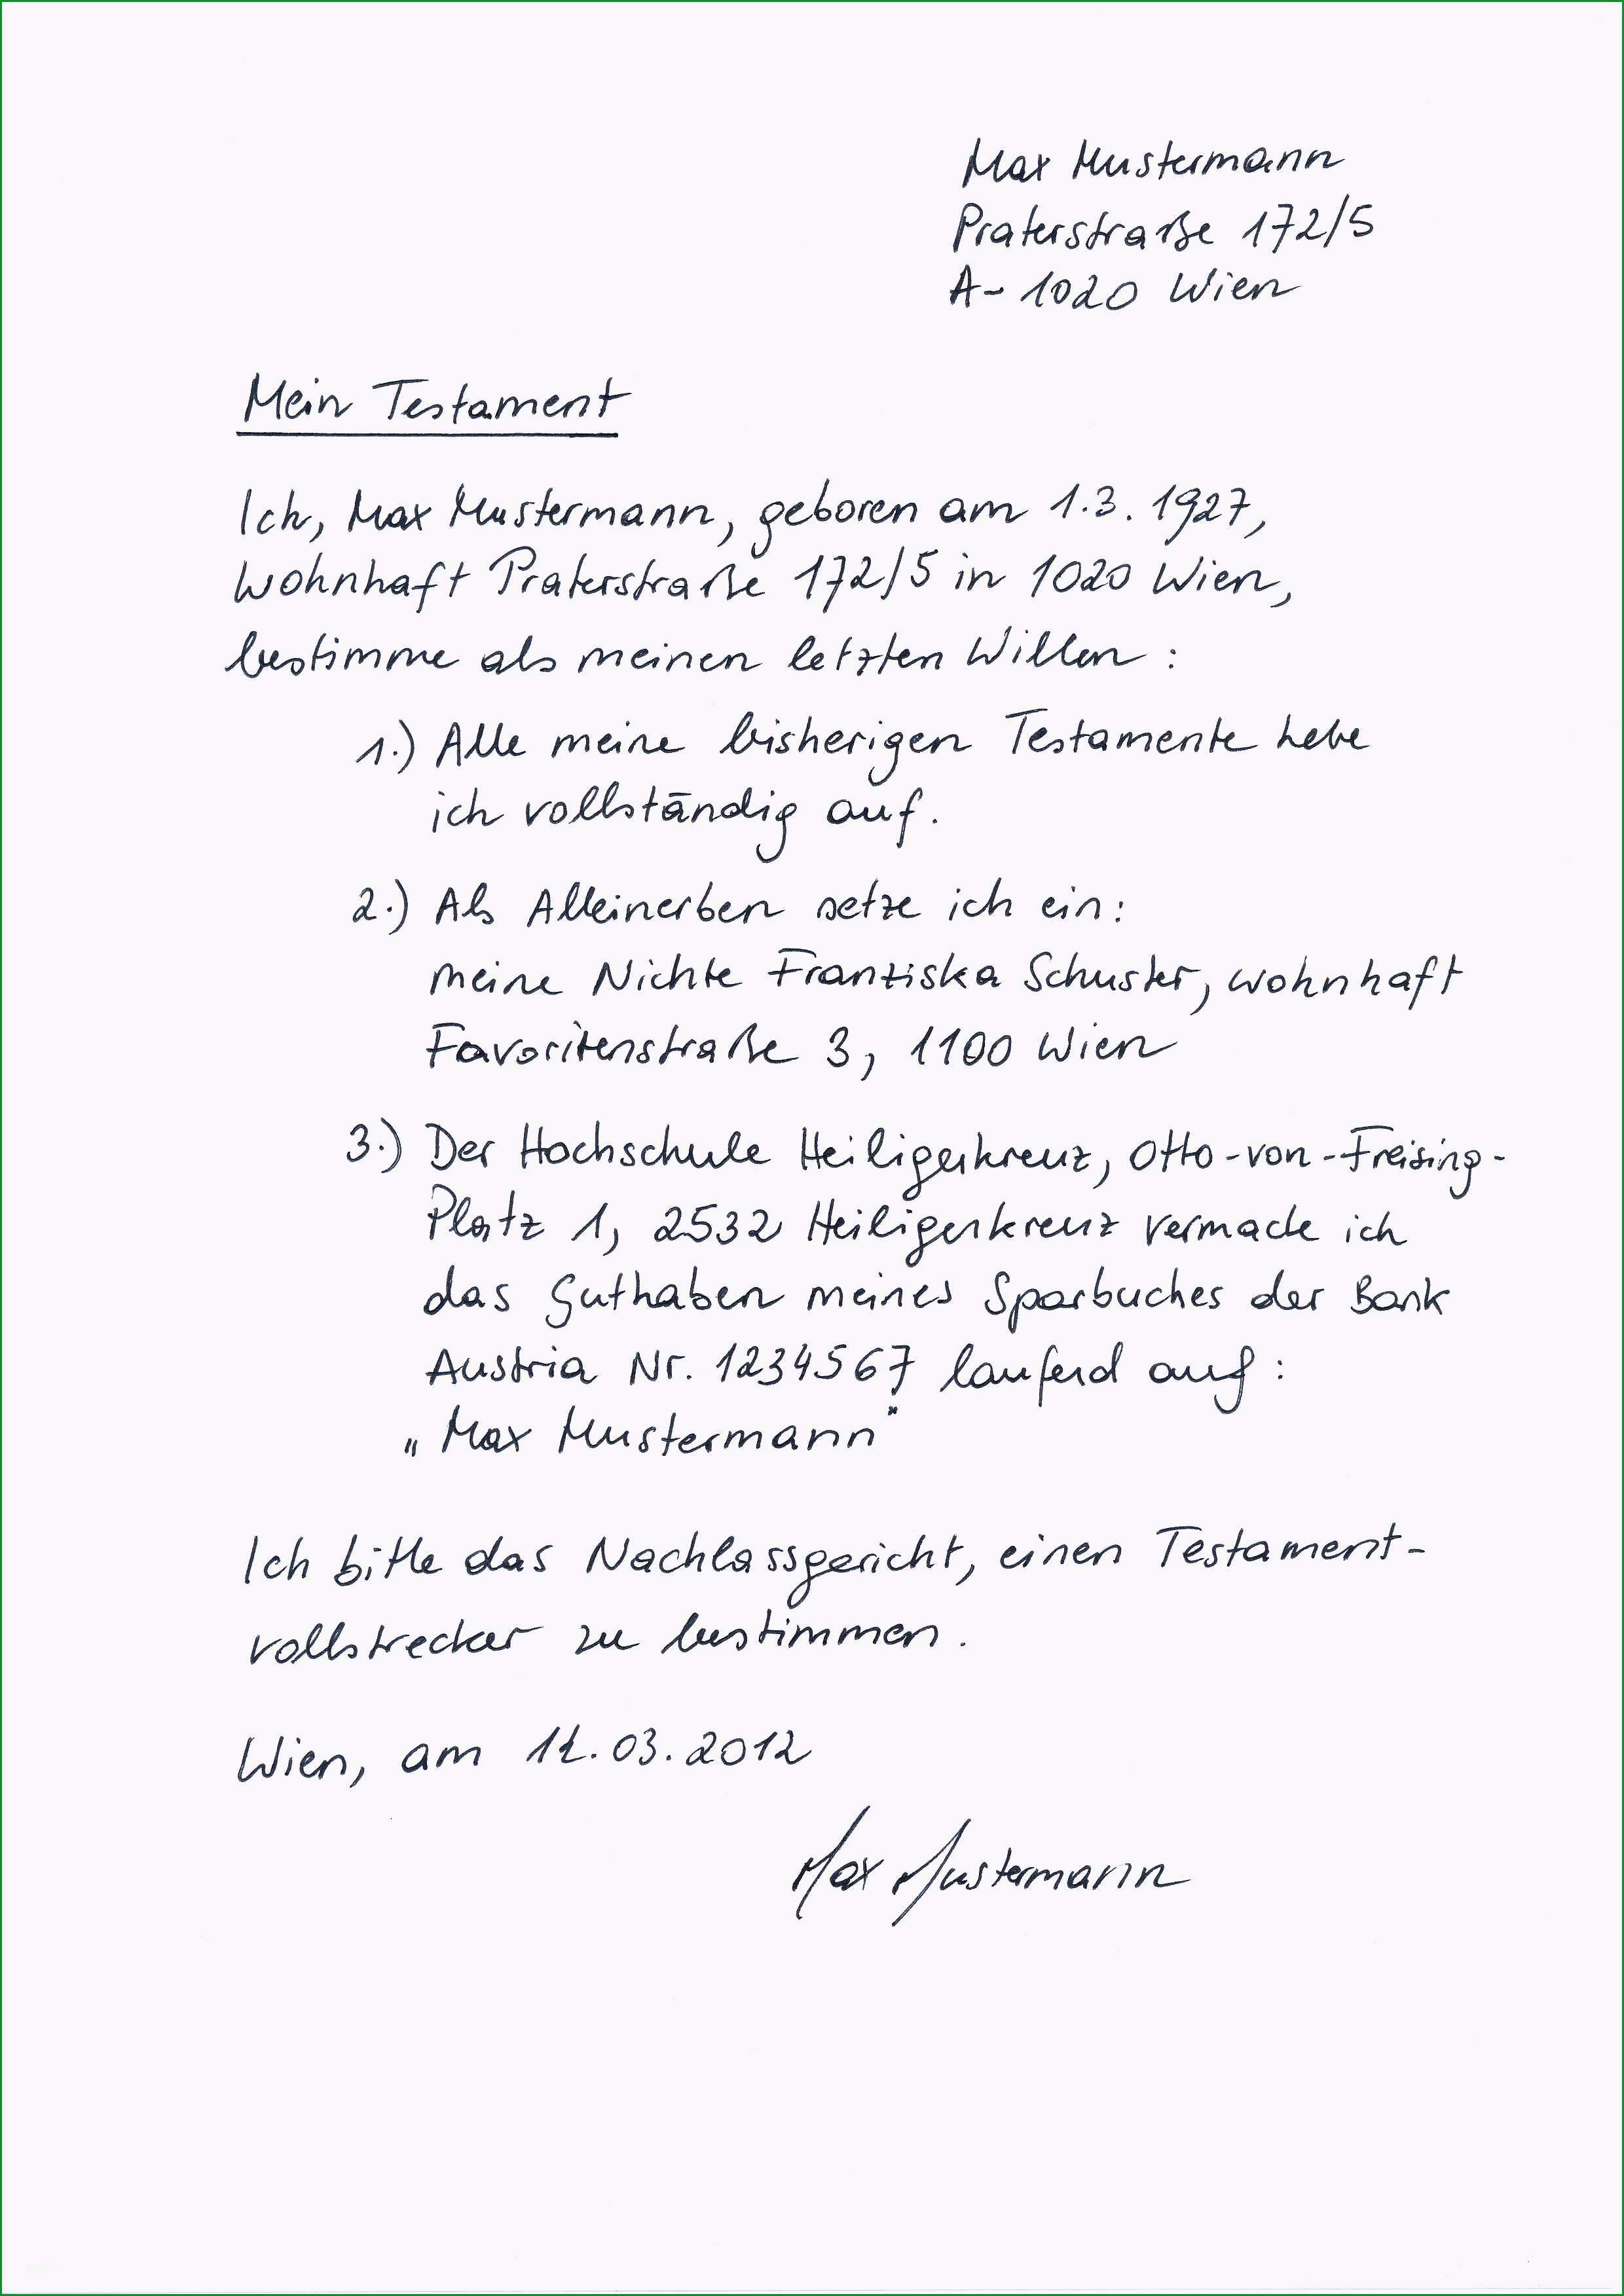 Max Mustermann
Praterstraße 172/5
A-1020 Wien
Mein Testament
Ich, Max Mustermann, geboren am 1.3.1927,
wohnhaft Praterstraße 172/5 in 1020 Wien,
bestimme als meinen letzten Willen:
1.) Alle meine bisherigen Testamente hebe
ich vollständig auf.
2.) Als Alleinerben setze ich ein:
meine Nichte Franziska Schuster, wohnhaft
Favoritenstraße 3, 1100 Wien
3.) Der Hochschule Heiligenkreuz, Otto-von-Freising-
Platz 1, 2532 Heiligenkreuz vermache ich
das Guthaben meines Sparbuches der Bank
Austria Nr. 1234567 laufend auf:
„Max Mustermann"
Ich bitte das Nachlassgericht, einen Testament-
vollstrecker zu bestimmen.
Wien, am .03.2012
Max Mustermann